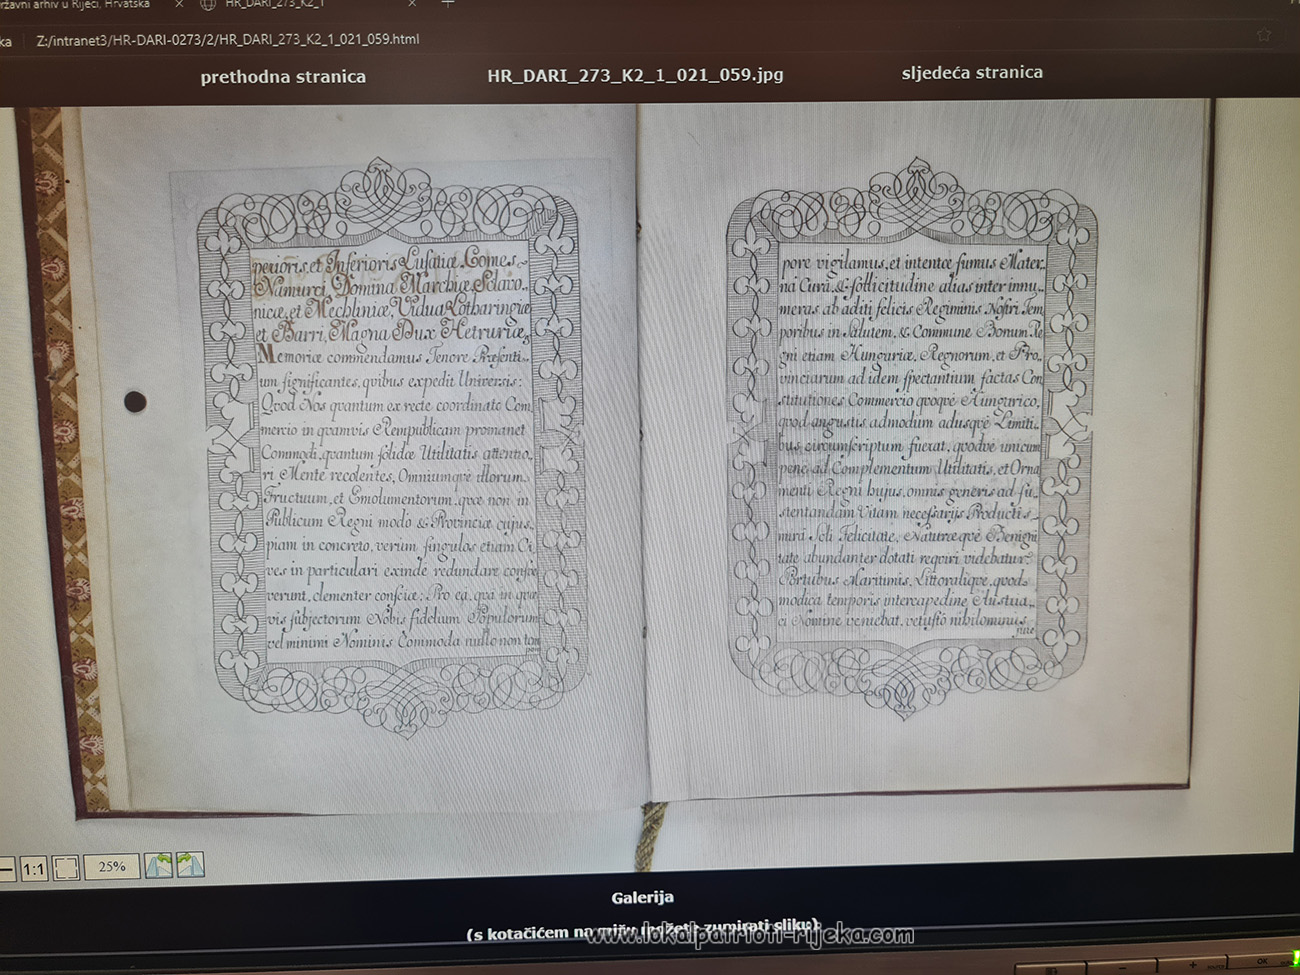 državni arhiv u Rijeci, Hrvatska
HR_DARI_273_K2_1
Z:/intranet3/HR-DARI-0273/2/HR_DARI_273_K2_1_021_059.html
prethodna stranica
HR_DARI_273_K2_1_021_059.jpg
sljedeća stranica
perioris, et Inferioris Lusatiæ, Comes
Namurci, Domina Marchiæ, Sclavo-
nicæ, et Mechliniæ, Vidua Lotharingiæ
et Barri, Magna Dux Hetruriæ,
Memoriæ commendamus Tenore Præsenti-
um significantes, quibus expedit Universis:
Quod Nos quantum ex recte coordinato Com-
mercio in quamvis Rempublicam promanet
Commodi, quantum solidæ Utilitatis attentio-
ri Mente recolentes, Omniumque illorum
Fructuum, et Emolumentorum, quæ non in
Publicum Regni modo & Provinciæ cujus-
piam in concreto, verum singulos etiam Ci-
ves in particulari exinde redundare
verunt, clementer consciæ; Pro ea, qua in quæ
vis subjectorum Nobis fidelium Populorum
vel minimi Nominis Commoda nullo non tem
pore
pore vigilamus, et intentæ sumus Mater-
na Cura, & sollicitudine alias inter innu-
meras ab aditi felicis Regiminis Nostri Tem
poribus in Salutem, & Commune Bonum Re
gni etiam Hungariæ, Regnorum, et Pro-
vinciarum ad idem spectantium factas Con
stitutiones Commercio quoque Hungarico,
quod angustis admodum adusque Limiti-
bus circumscriptum fuerat, quodve unicum
pene ad Complementum Utilitatis, et Orna
menti Regni hujus, omnis generis ad su-
stentandam Vitam necessarijs Productis
mira Soli Felicitate, Naturæque Benigni
tate abundanter dotati requiri videbatur:
Portubus Maritimis, Littoralique, quod
modica temporis intercapedine Austria-
ci Nomine veniebat, vetusto nihilominus
jure
1:1
25%
Galerija
(s kotačićem na mišu možete zumirati sliku)
www.lokalpatrioti-rijeka.com
OK